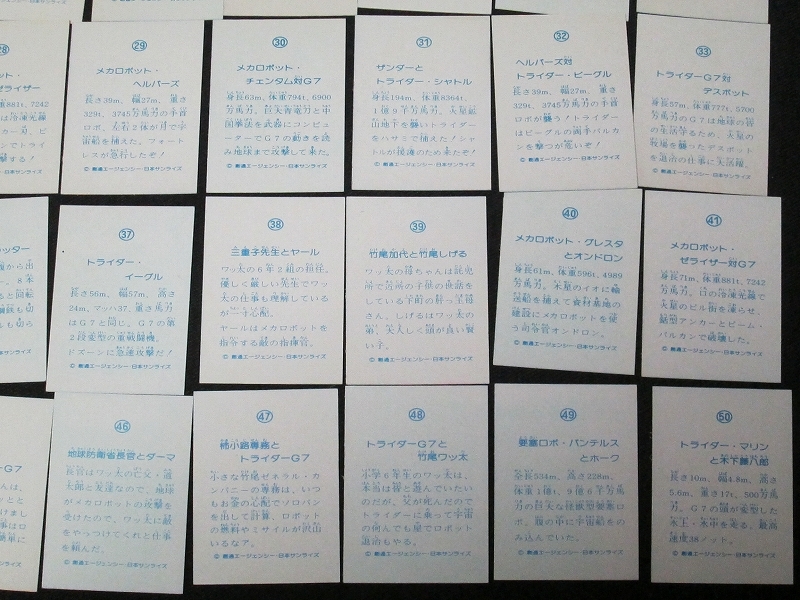 28
29
メカロボット・
ヘルパーズ
長さ39m、幅27m、重さ
329t、3745万馬力の手首
ロボ、左右2体が月で宇
宙船を捕えた。フォート
レスが急行したぞ！
© 創通エージェンシー・日本サンライズ
30
メカロボット・
チェンタム対G7
身長63m、体重794t、6900
万馬力。巨大青竜刀と中
国拳法を武器にコンピュ
ーターでG7の動きを読
み地球まで攻撃して来た。
© 創通エージェンシー・日本サンライズ
31
ザンダーと
トライダー・シャトル
身長194m、体重8364t、
1億9千万馬力。火星鉱
山地下を襲いトライダー
をハサミで捕えた！シャ
トルが援護のため来たぞ！
© 創通エージェンシー・日本サンライズ
32
ヘルパーズ対
トライダー・ビーグル
長さ39m、幅27m、重さ
329t、3745万馬力の手首
ロボが襲う！トライダー
はビーグルの両手バルカ
ンを撃つが危いぞ！
© 創通エージェンシー・日本サンライズ
33
トライダーG7対
デスポット
身長57m、体重777t、5700
万馬力のG7は地球の皆
の生活守るため、火星の
牧場を襲ったデスポット
を退治の仕事に大活躍。
© 創通エージェンシー・日本サンライズ
37
トライダー・
イーグル
長さ56m、幅57m、高さ
24m、マッハ37、重さ馬力
はG7と同じ。G7の第
2段変型の重戦闘機、
ドズーンに急速攻撃だ！
© 創通エージェンシー・日本サンライズ
38
三重子先生とヤール
ワッ太の6年2組の担任。
優しく厳しい先生でワッ
太の仕事も理解している
が一寸心配。
ヤールはメカロボットを
指令する敵の指揮官。
© 創通エージェンシー・日本サンライズ
39
竹尾加代と竹尾しげる
ワッ太の母ちゃんは託児
所で近所の子供の世話を
している下町の肝っ玉母
さん。しげるはワッ太の
弟、大人しく頭が良い賢い
子。
© 創通エージェンシー・日本サンライズ
40
メカロボット・グレスタ
とオンドロン
身長61m、体重596t、4989
万馬力。木星のイオに輸
送船を捕えて資材基地の
建設にメカロボットを使
う司令官オンドロン。
© 創通エージェンシー・日本サンライズ
41
メカロボット・
ゼライザー対G7
身長71m、体重881t、7242
万馬力。口の冷凍光線で
火星のビル街を凍らせ
錨型アンカーとビーム・
バルカンで破壊した。
© 創通エージェンシー・日本サンライズ
46
地球防衛省長官とダーマ
長官はワッ太の亡父・道
太郎と友達なので、地球
がメカロボットの攻撃を
受けたので、ワッ太に敵
をやっつけてくれと仕事
を頼んだ。
© 創通エージェンシー・日本サンライズ
47
柿小路専務と
トライダーG7
小さな竹尾ゼネラル・カ
ンパニーの専務は、いつ
もお金の心配でソロバン
を出して計算、ロボット
の燃料やミサイルが沢山
いるなア。
© 創通エージェンシー・日本サンライズ
48
トライダーG7と
竹尾ワッ太
小学6年生のワッ太は、
本当は皆と遊んでいたい
のだが、父が死んだので
トライダーに乗って宇宙
の何んでも屋でロボット
退治もやる。
© 創通エージェンシー・日本サンライズ
49
要塞ロボ・パンチルス
とホーク
全長534m、高さ228m、
体重1億t、9億6千万馬
力の巨大な怪獣型要塞ロ
ボ、腹の中に宇宙船をの
み込んでいた。
© 創通エージェンシー・日本サンライズ
50
トライダー・マリン
と木下藤八郎
長さ10m、幅4.8m、高さ
5.6m、重さ17t、500万馬
力。G7の頭が変型した
水王・水中を走る。最高
速度38ノット。
© 創通エージェンシー・日本サンライズ